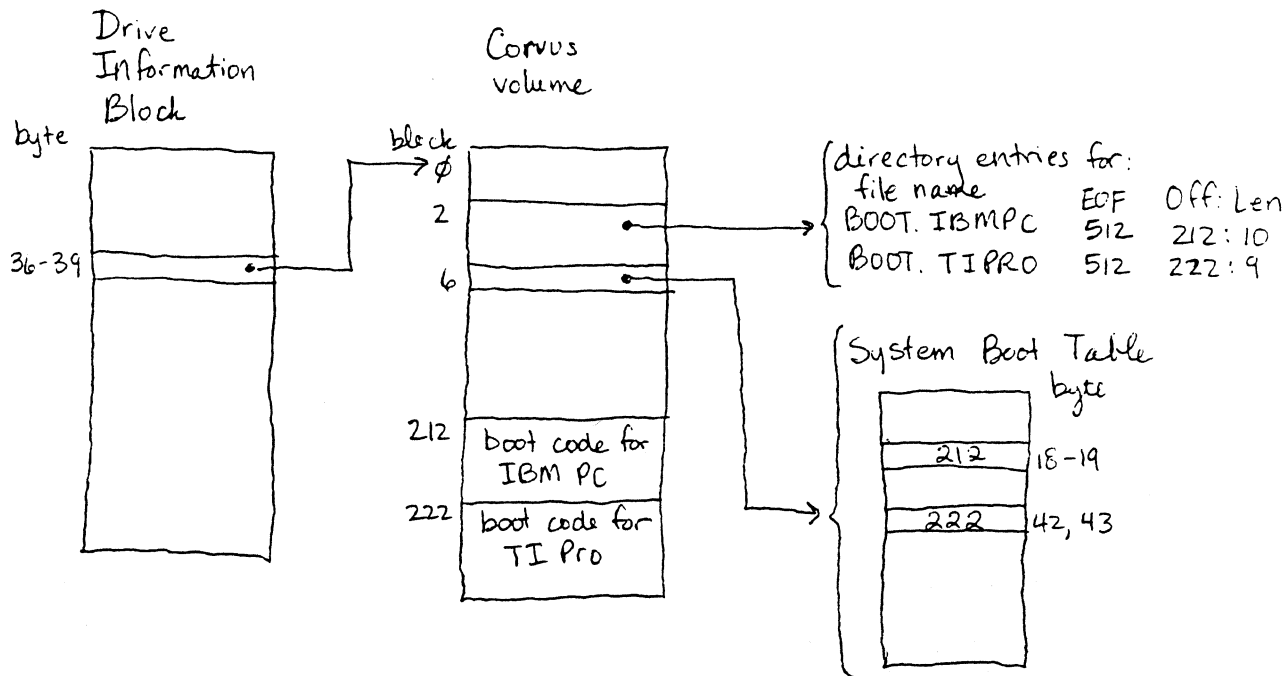 Drive
Information
Block
byte
36-39
Corvus
volume
block
ø
2
6
212
boot code for
IBM PC
222
boot code for
TI Pro
directory entries for:
file name EOF Off: Len
BOOT. IBMPC 512 212: 10
BOOT. TIPRO 512 222: 9
System Boot Table
byte
212 18-19
222 42, 43